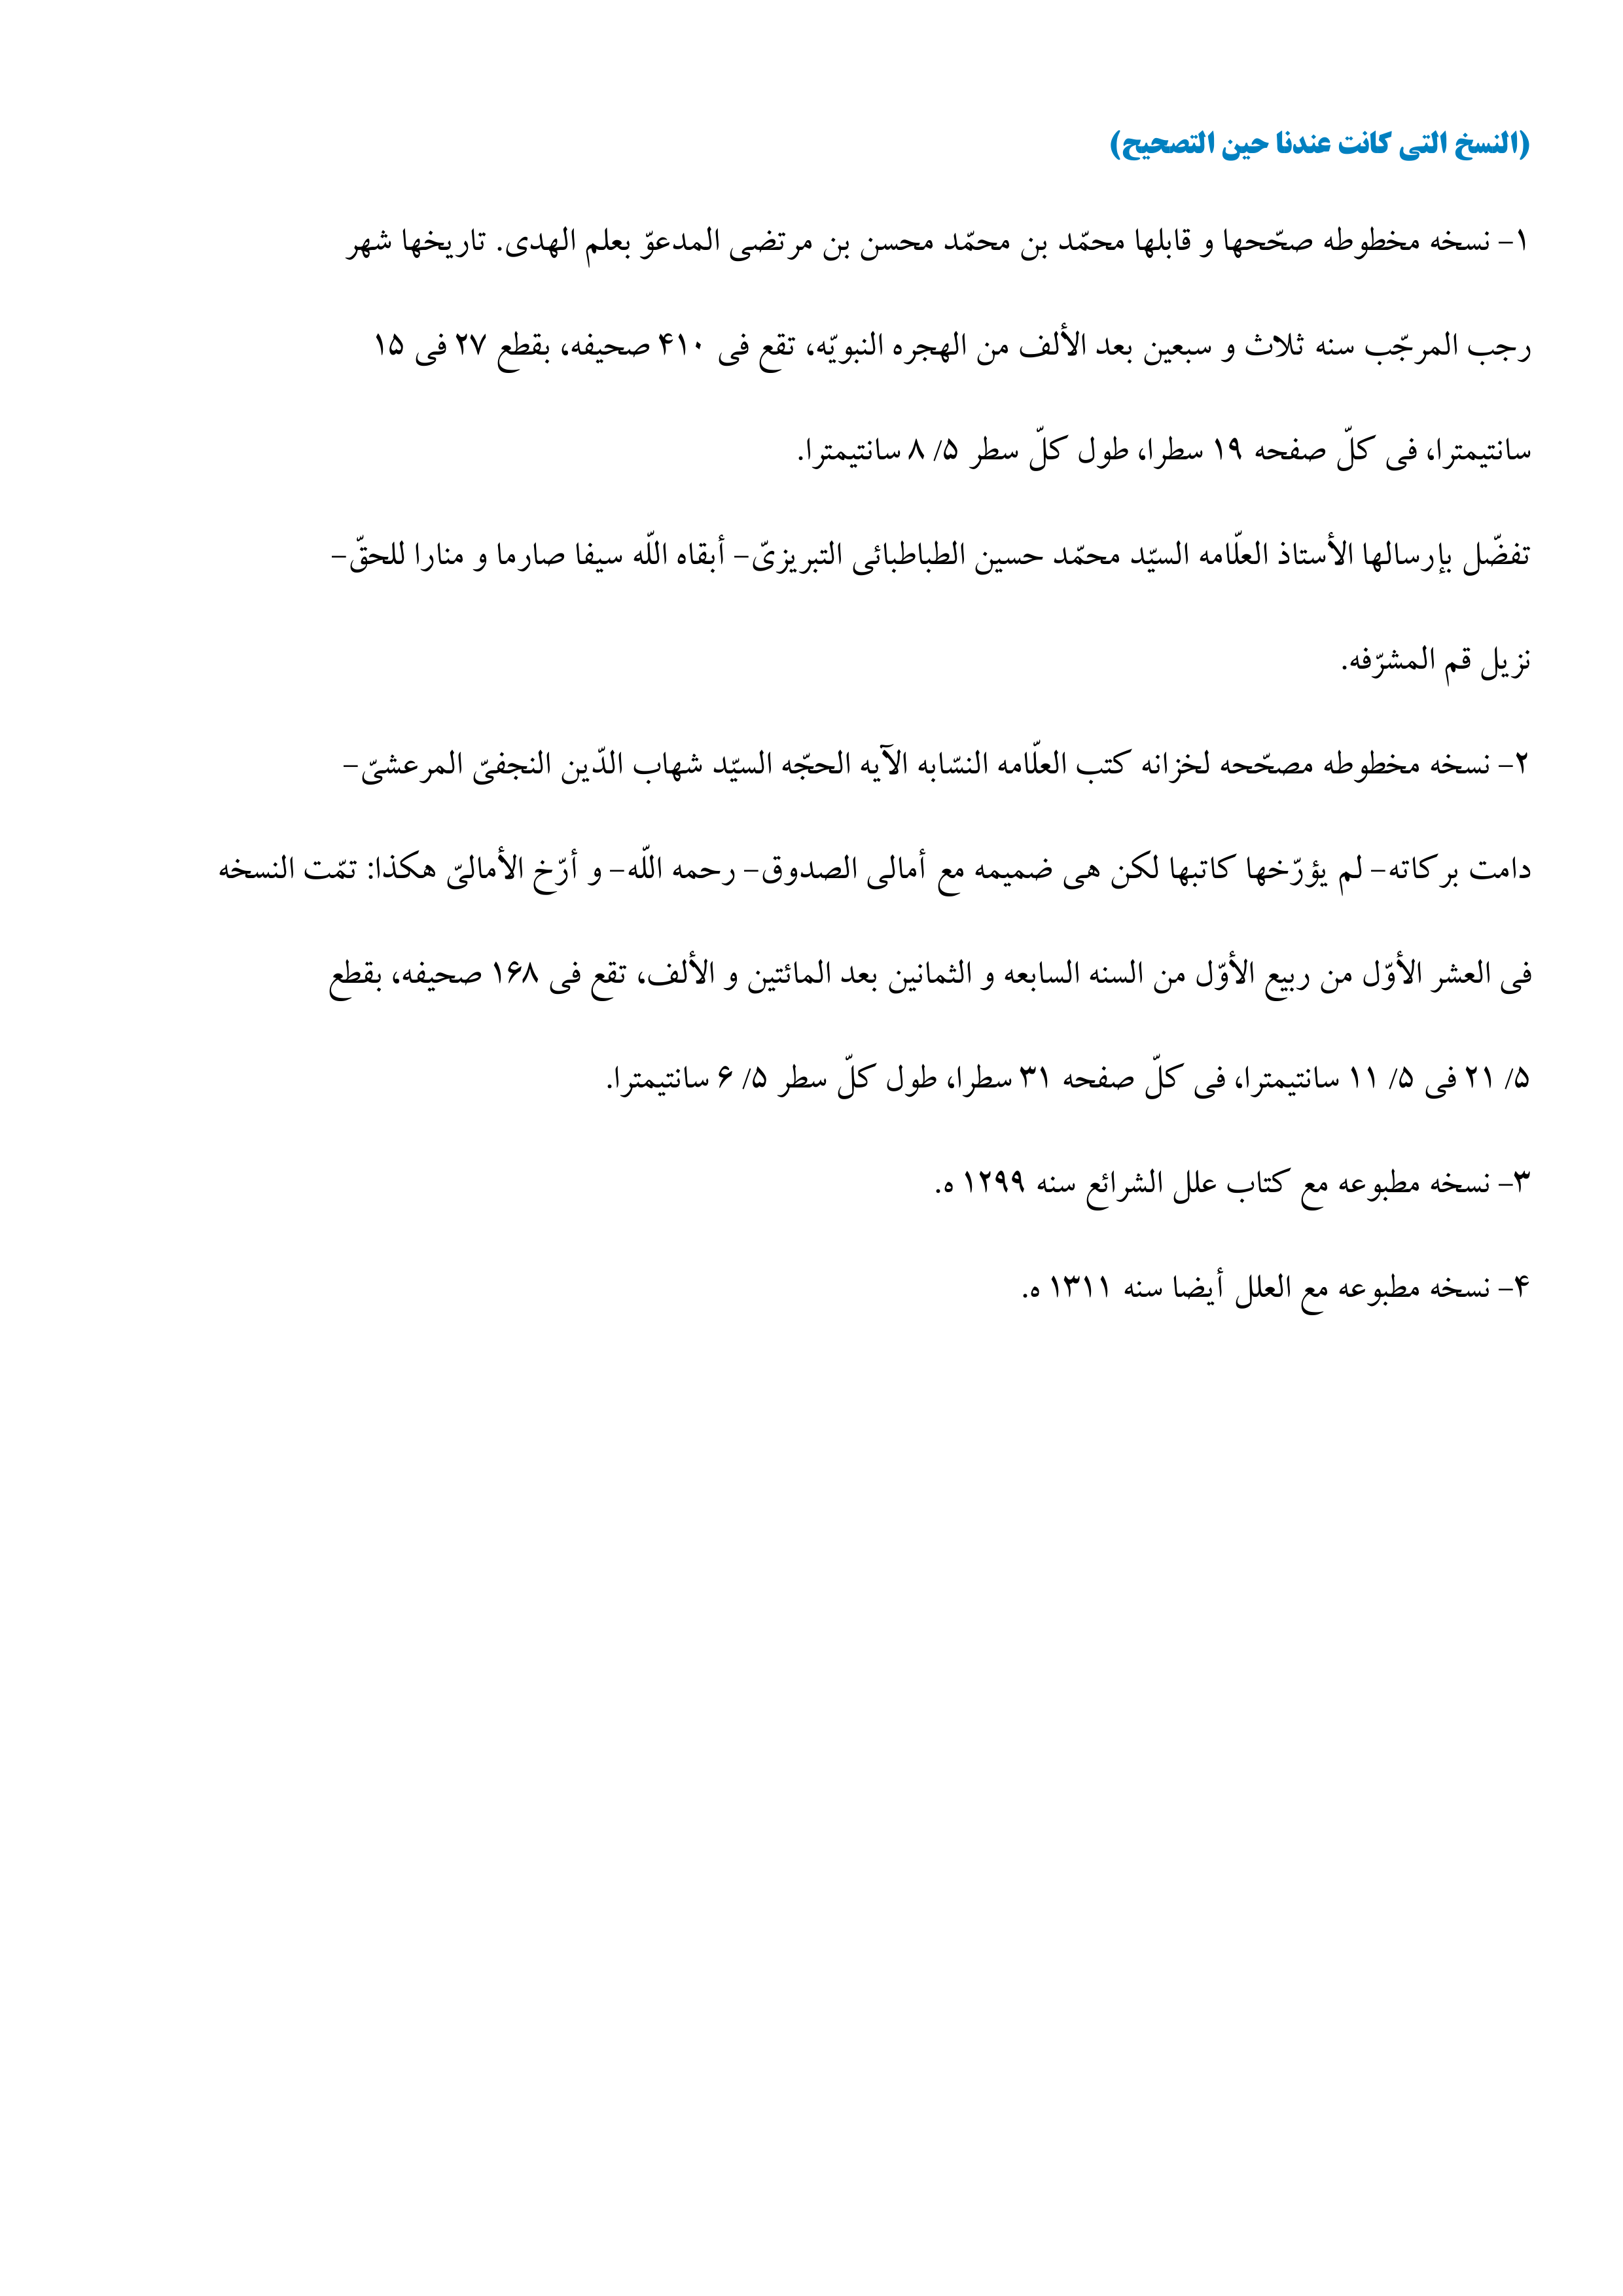 (النسخ التی کانت عندنا حین التصحیح)
۱- نسخه مخطوطه صحّحها و قابلها محمّد بن محمّد محسن بن مرتضی المدعوّ بعلم الهدی. تاریخها شهر
رجب المرجّب سنه ثلاث و سبعین بعد الألف من الهجره النبویّه، تقع فی ۴۱۰ صحیفه، بقطع ۲۷ فی ۱۵
سانتیمترا، فی کلّ صفحه ۱۹ سطرا، طول کلّ سطر ۵/ ۸ سانتیمترا.
تفضّل بإرسالها الأستاذ العلّامه السیّد محمّد حسین الطباطبائی التبریزیّ- أبقاه اللّه سیفا صارما و منارا للحقّ-
نزیل قم المشرّفه.
۲- نسخه مخطوطه مصحّحه لخزانه کتب العلّامه النسّابه الآیه الحجّه السیّد شهاب الدّین النجفیّ المرعشیّ-
دامت برکاته- لم یؤرّخها کاتبها لکن هی ضمیمه مع أمالی الصدوق- رحمه اللّه- و أرّخ الأمالیّ هکذا: تمّت النسخه
فی العشر الأوّل من ربیع الأوّل من السنه السابعه و الثمانین بعد المائتین و الألف، تقع فی ۱۶۸ صحیفه، بقطع
۵/ ۲۱ فی ۵/ ۱۱ سانتیمترا، فی کلّ صفحه ۳۱ سطرا، طول کلّ سطر ۵/ ۶ سانتیمترا.
۳- نسخه مطبوعه مع کتاب علل الشرائع سنه ۱۲۹۹ ه.
۴- نسخه مطبوعه مع العلل أیضا سنه ۱۳۱۱ ه.